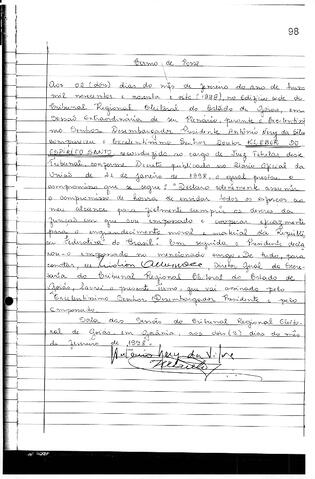 98
Termo de Posse
Aos 02 (dois) dias do mês de fevereiro do ano de hum
mil novecentos e noventa e oito (1998), no Edifício sede do
Tribunal Regional Eleitoral do Estado de Goiás, em
Sessão Extraordinária de seu Plenário perante o Excelentíssi-
mo Senhor Desembargador Presidente Antônio Nery da Silva
compareceu o Excelentíssimo Senhor Doutor KLEBER DO
ESPÍRITO SANTO reconduzido no cargo de Juiz Titular deste
Tribunal, conforme Decreto publicado no Diário Oficial da
União de 21 de janeiro de 1998, o qual prestou o
compromisso que se segue: "Declaro solenemente assumir
o compromisso de honra de envidar todos os esforços ao
meu alcance para fielmente cumprir os deveres da
função em que sou empossado e cooperar eficazmente
para o engrandecimento moral e material da Repúbli-
ca Federativa do Brasil". Em seguida o Presidente decla-
rou-o empossado no mencionado cargo. De tudo, para
constar, eu Diretor Geral da Secre-
taria do Tribunal Regional Eleitoral do Estado de
Goiás, lavrei o presente termo que vai assinado pelo
Excelentíssimo Senhor Desembargador Presidente e pelo
empossado.
Sala das Sessões do Tribunal Regional Eleito-
ral de Goiás, em Goiânia, aos dois (2) dias do mês
de fevereiro de 1998.
Antônio Nery da Silva